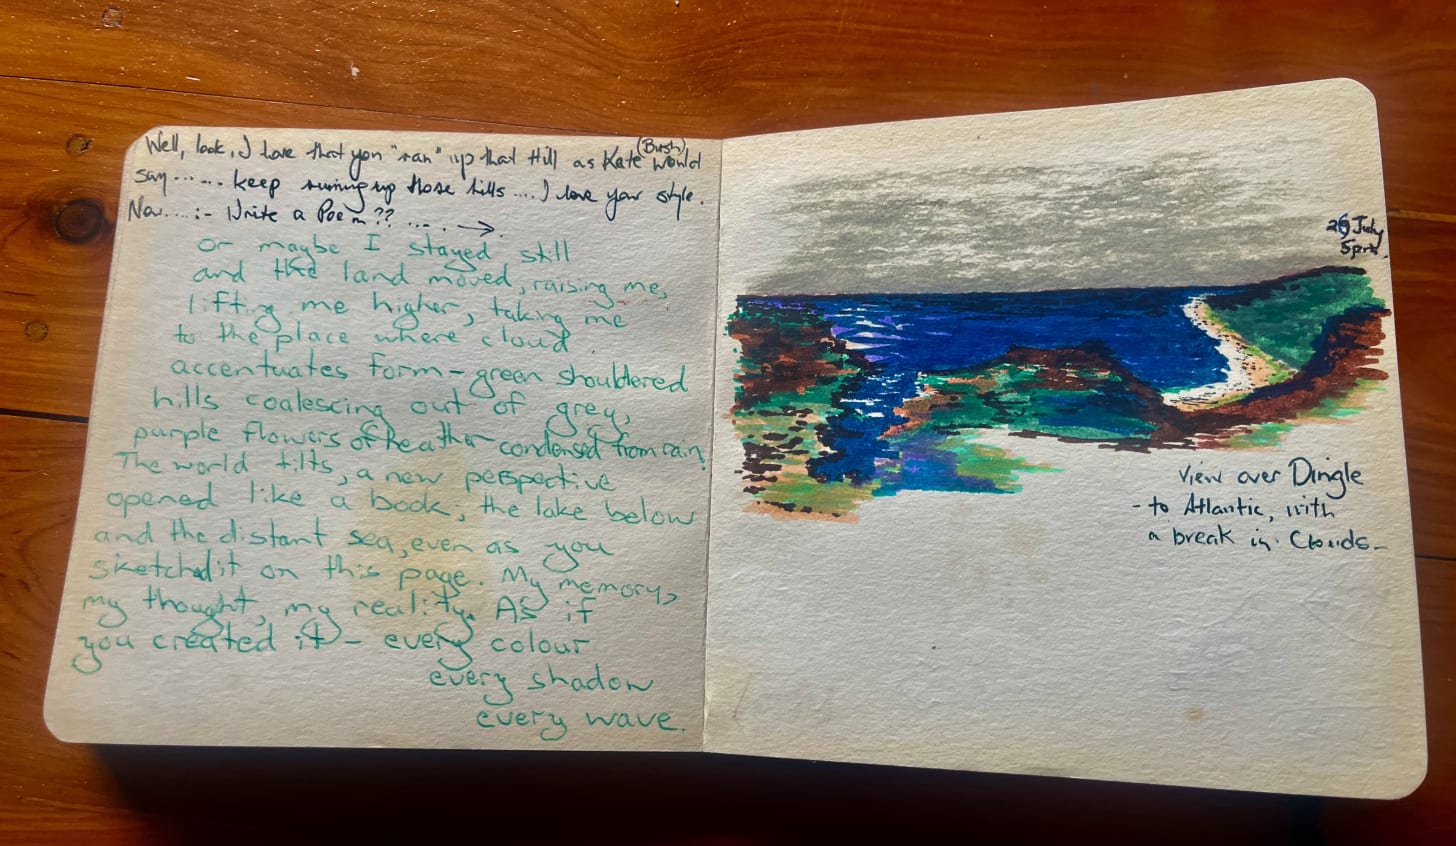 Well, look, I love that you "ran" up that Hill as Kate (Bush) would
say ...... keep running up those hills .... I love your style.
Now....:- Write a Poem?? ..... →
or maybe I stayed still
and the land moved, raising me,
lifting me higher, taking me
to the place where cloud
accentuates form - green shouldered
hills coalescing out of grey,
purple flowers of heather condensed from rain.
The world tilts, a new perspective
opened like a book, the lake below
and the distant sea, even as you
sketched it on this page. My memory,
my thought, my reality. As if
you created it - every colour
every shadow
every wave.
26 July
5pm.
View over Dingle
- to Atlantic, with
a break in Clouds -